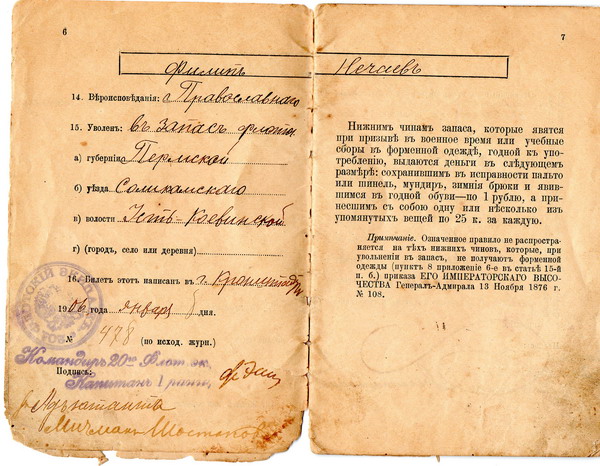 6
Филипъ
14. Вѣроисповѣданія: Православнаго
15. Уволенъ: въ запасъ флота
а) губерніи Пермской
б) уѣзда Соликамскаго
в) волости Усть-Косвинской
г) (городъ, село или деревня)
16. Билетъ этотъ написанъ въ г. Кронштадтѣ
1906 года января дня.
№ 478 (по исход. журн.)
Командиръ 20го Флот. эк.
Капитанъ 1 ранга
Подпись:
Адъютантъ
Мичманъ
7
Нечаевъ
Нижнимъ чинамъ запаса, которые явятся
при призывѣ въ военное время или учебные
сборы въ форменной одеждѣ, годной къ упо-
требленію, выдаются деньги въ слѣдующемъ
размѣрѣ: сохранившимъ въ исправности пальто
или шинель, мундиръ, зимнія брюки и явив-
шимся въ годной обуви—по 1 рублю, а при-
несшимъ съ собою одну или нѣсколько изъ
упомянутыхъ вещей по 25 к. за каждую.
Примѣчаніе. Означенное правило не распростра-
няется на тѣхъ нижнихъ чиновъ, которые, при
увольненіи въ запасъ, не получаютъ форменной
одежды (пунктъ 8 приложение 6-е къ статьѣ 15-й
п. б.) приказа ЕГО ИМПЕРАТОРСКАГО ВЫСО-
ЧЕСТВА Генералъ-Адмирала 13 Ноября 1876 г.
№ 108.